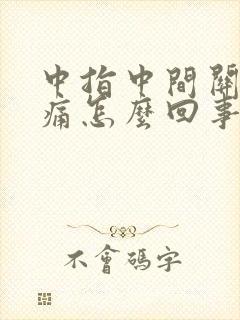 中指中間關
痛怎麼回事
不會碼字